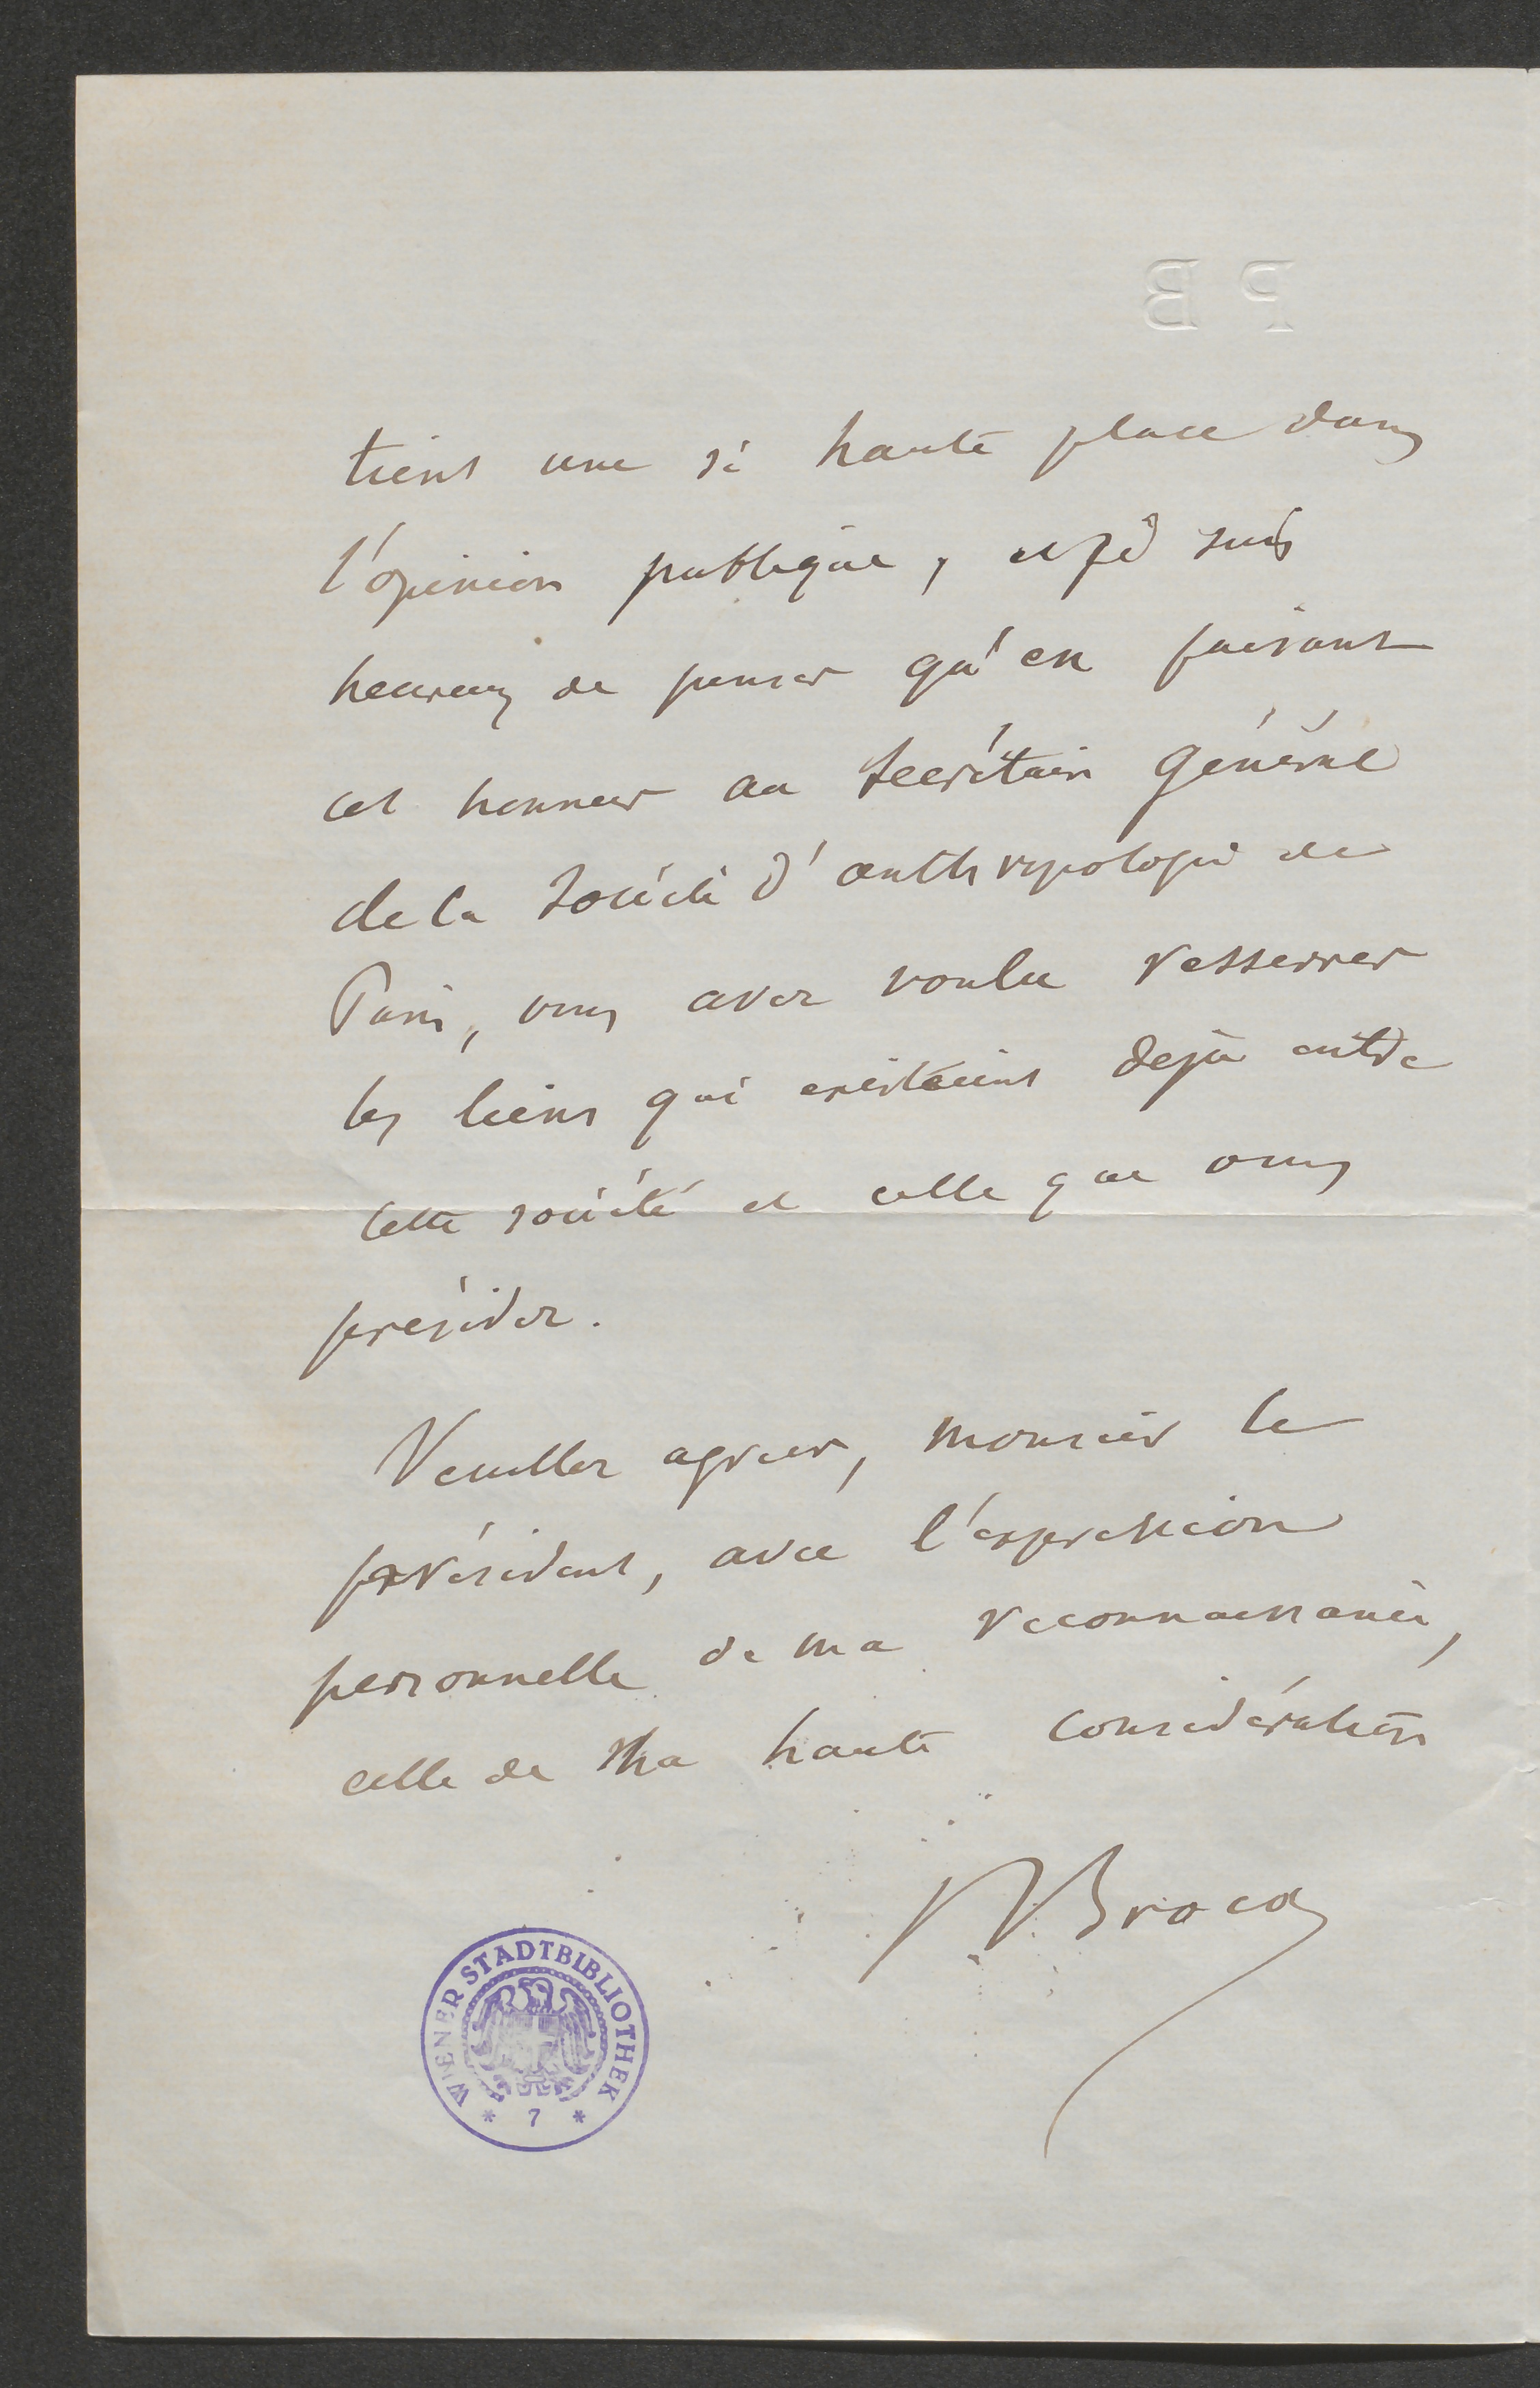 P B
tient une si haute place dans
l'opinion publique, et je suis
heureux de penser qu'en faisant
cet honneur au Secrétaire Général
de la Société d'anthropologie de
Paris, vous avez voulu resserrer
les liens qui existaient déjà entre
cette société et celle que vous
présidez.
Veuillez agréer, monsieur le
président, avec l'expression
personnelle de ma reconnaissance,
celle de ma haute considération
P Broca
WIENER STADTBIBLIOTHEK
* 7 *